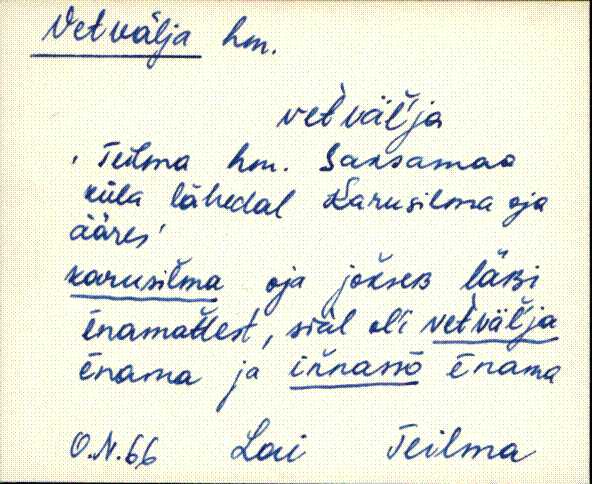 Vetvälja hm.
vet̀väľja
'Teilma hm. Saksamaa
küla lähedal Karusilma oja
ääres'
karusiľma oja jokseʙ läʙi
ēnamaЂest, siäl oľi vet̀väľja
ēnama ja iňnassõ ēnama
O.N.66 Lai Teilma